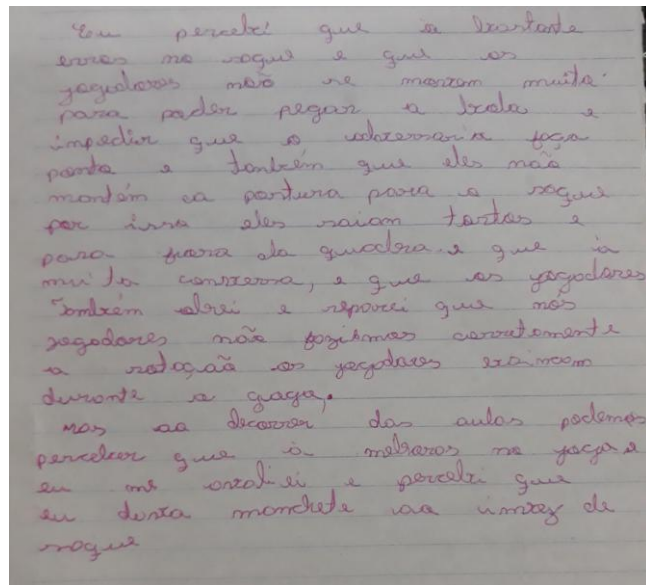 Eu percebi que a bastante
erros no soque e que os
jogodores não se moxem muito
para poder pegar a bola e
impedir que o adversario faça
ponto e também que eles não
montém a portura para o soque
por isso eles saiam tortos e
para fuera da quadra e que a
muita converra, e que os jogodores
Também obrei e reparei que nós
jogodores não fazihmos corretomente
a rotoção os jogodores
duronte o
mas ao decorrer das aulas podemos
perceber que a melroros no jogo e
eu me e percebi que
eu monchete ao de
soque